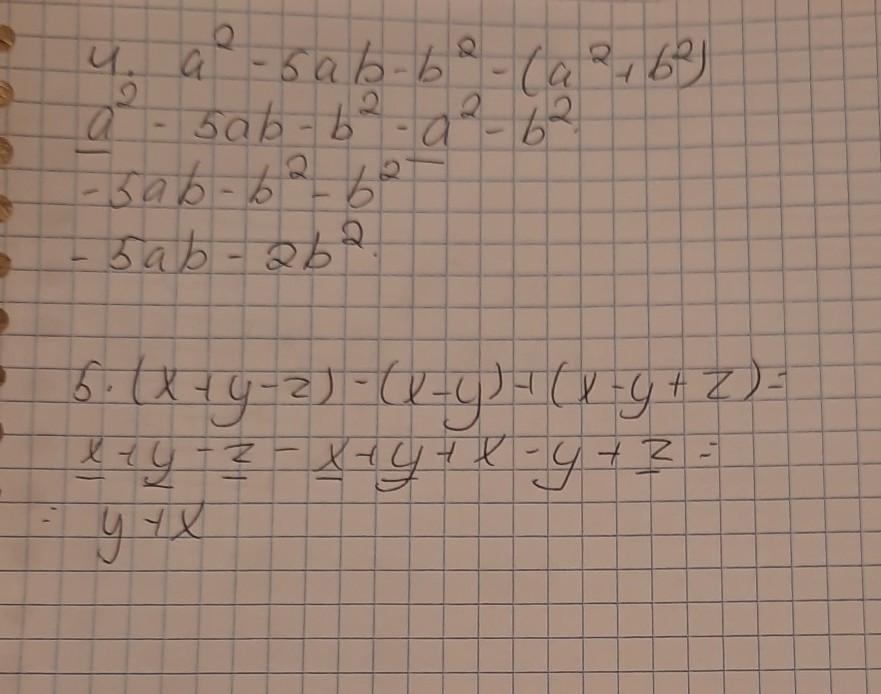 4. a² - 5ab - b² - (a² + b²)
a² - 5ab - b² - a² - b².
- 5ab - b² - b²
- 5ab - 2b².
5. (x + y - z) - (x - y) + (x - y + z) =
x + y - z - x + y + x - y + z =
= y + x